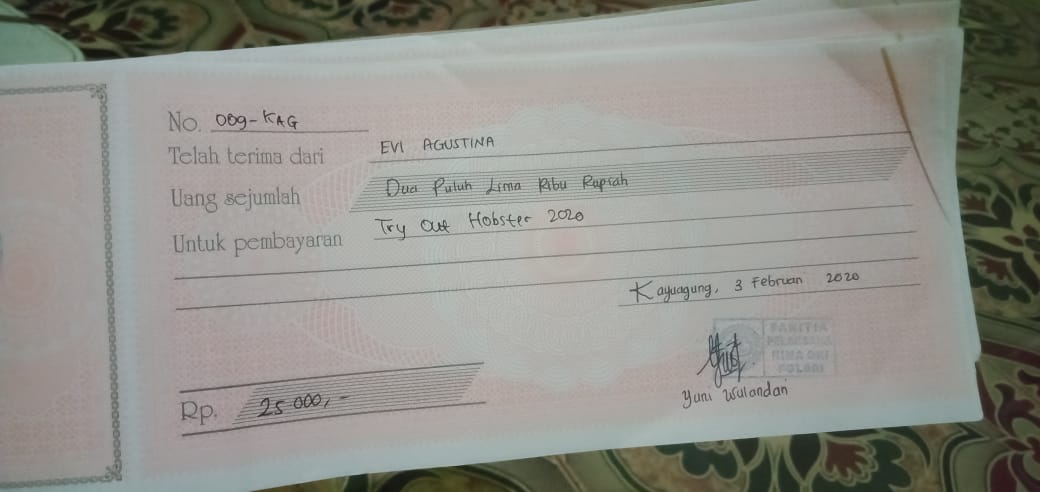 No. 009-KAG
Telah terima dari EVI AGUSTINA
Uang sejumlah Dua Puluh Lima Ribu Rupiah
Untuk pembayaran Try Out Hobster 2020
Kayuagung, 3 Februari 2020
PANITIA
Rp. 25.000,-
Yuni Wulandari